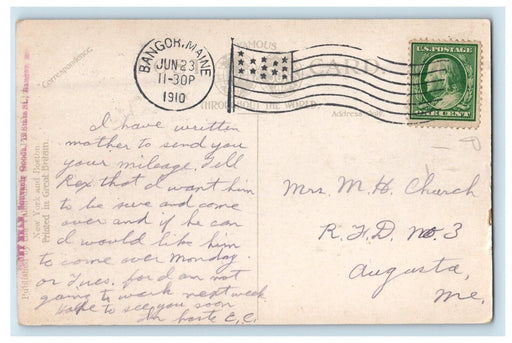 BANGOR, MAINE
JUN 23
11-30P
1910
U.S. POSTAGE
ONE CENT
FAMOUS
CARD
THROUGHOUT THE WORLD
Correspondence.
Address Only.
New York and Boston
Printed in Great Britain.
I have written
mother to send you
your mileage. Tell
Rex that I want him
to be sure and come
over and if he can
I would like him
to come over Monday
or Tues. for I am not
going to work next week
Hope to see you soon
In haste E.C.
Mrs. M. H. Church
R.F.D. No. 3
Augusta,
Me.